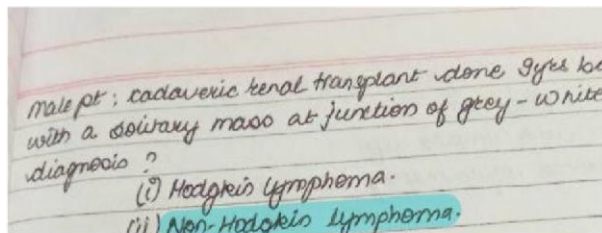 male pt ; cadaveric renal transplant done 9yrs
with a solitary mass at junction of grey - white
diagnosis ?
(i) Hodgkin lymphoma.
(ii) Non-Hodgkin lymphoma.